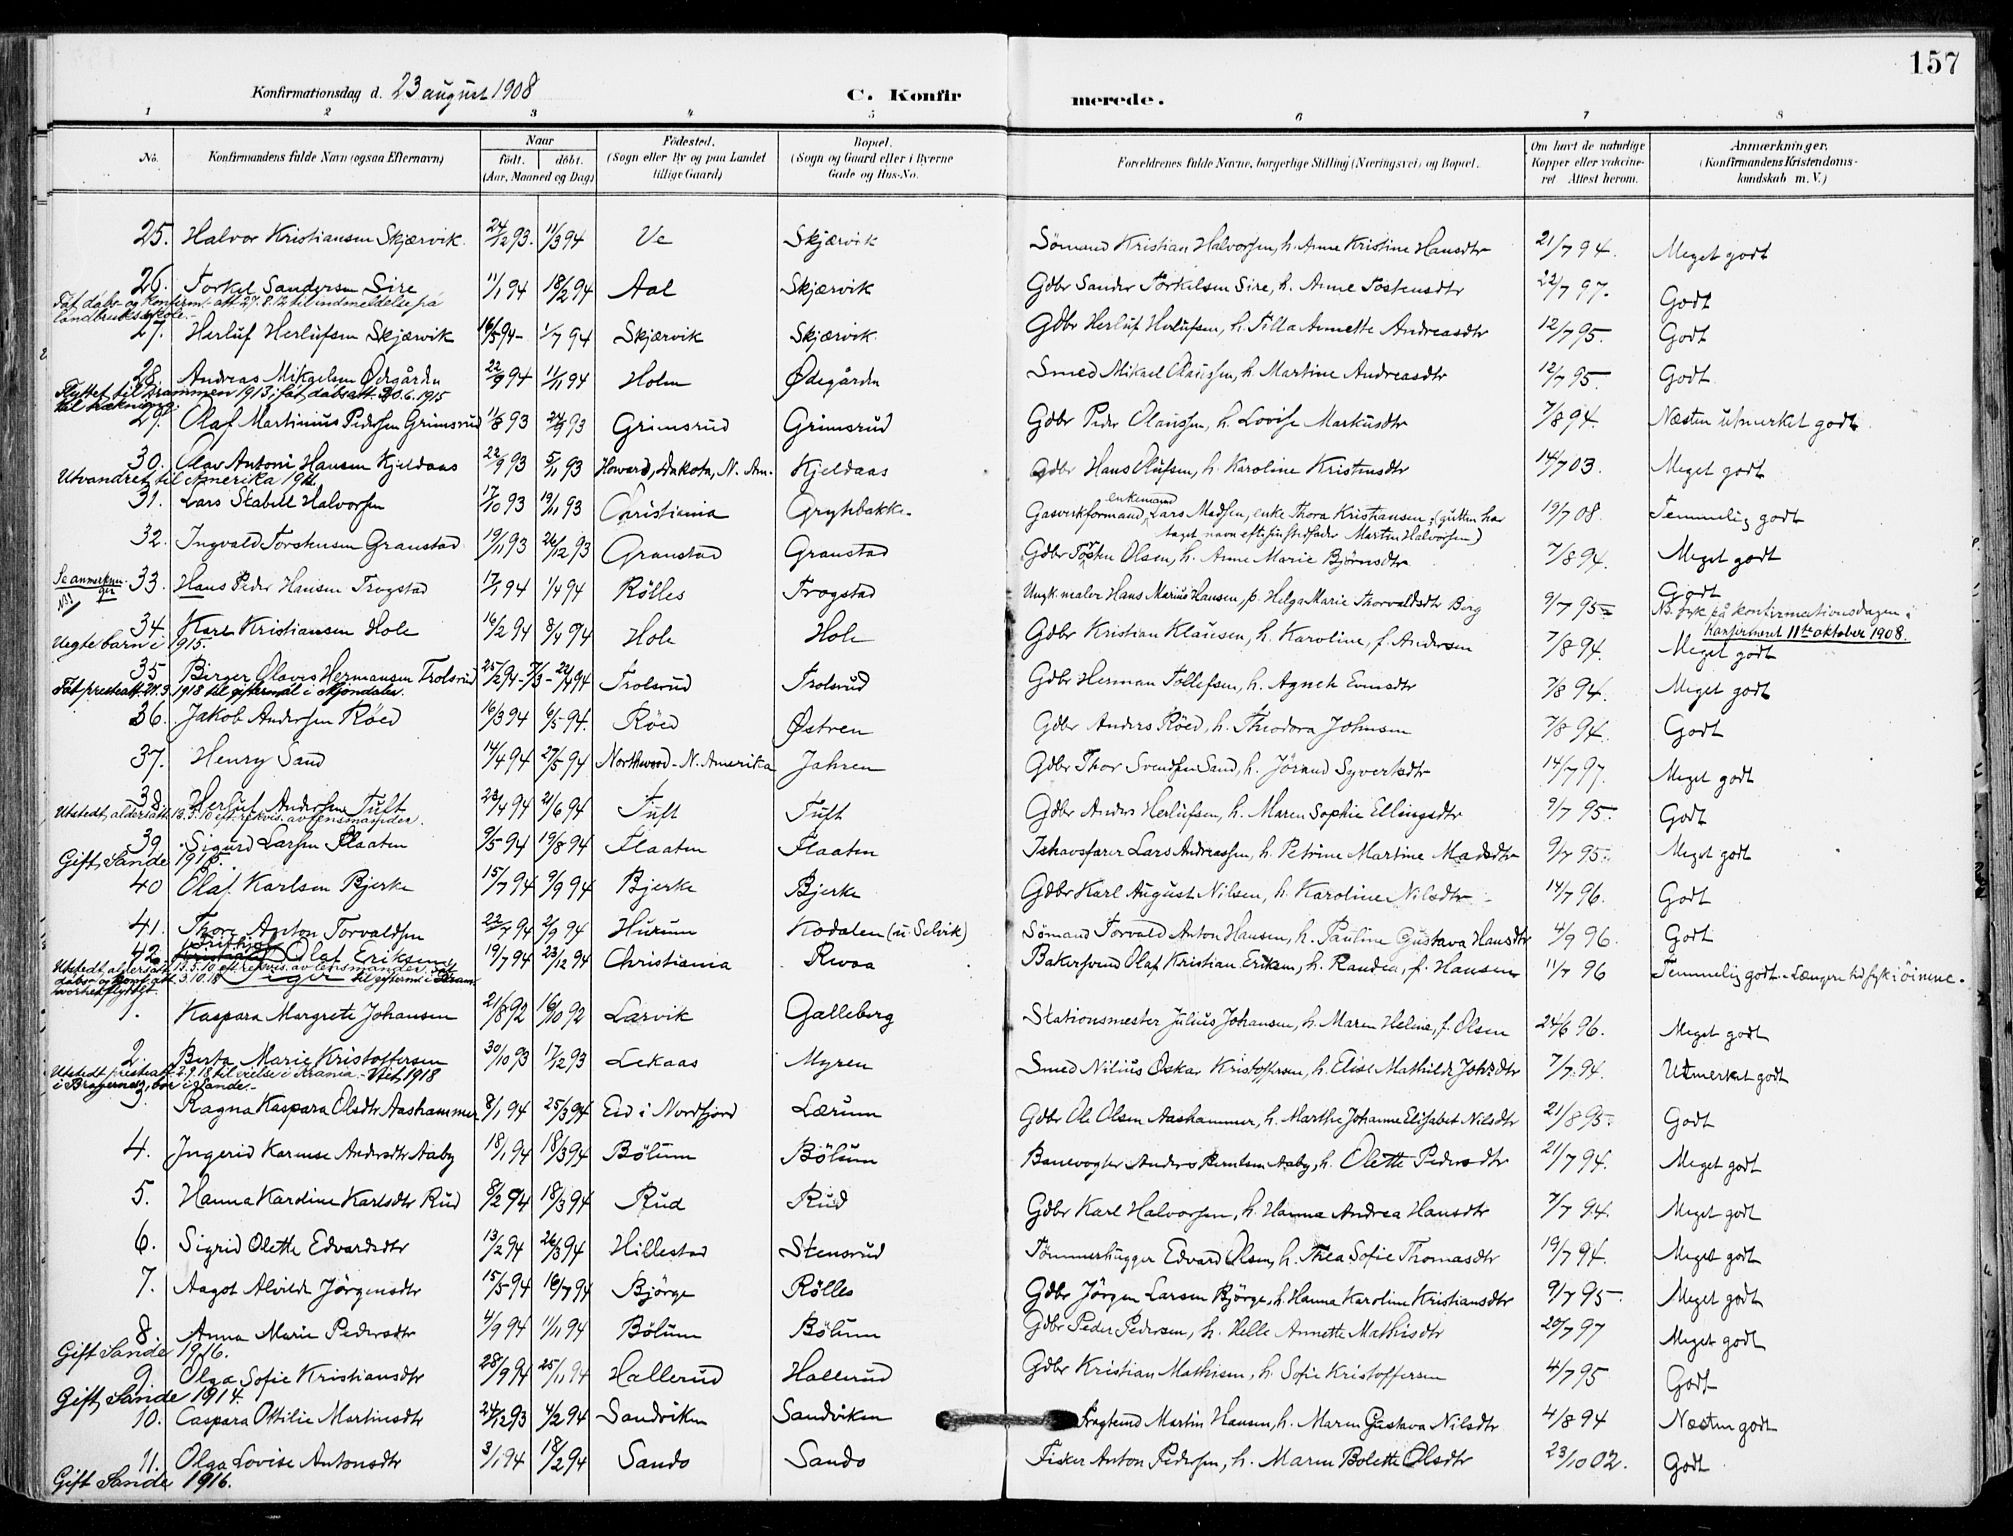 157
Konfirmationsdag d. 23 august 1908 C. Konfirmerede.
1 2 3 4 5 6 7 8
No. Konfirmandens fulde Navn (ogsaa Efternavn) Naar født. døbt. (Aar, Maaned og Dag) Fødested. (Sogn eller By og paa Landet tillige Gaard) Bopæl. (Sogn og Gaard eller i Byerne Gade og Hus-No. Forældrenes fulde Navne, borgerlige Stilling (Næringsvei) og Bopæl. Om havt de naturlige Kopper eller vaccineret Attest herom. Anmærkninger. (Konfirmandens Kristendomskundskab m. V.)
25. Halvor Kristiansen Skjærvik. 24/12 93. 11/3 94 Ve Skjærvik Sömand Kristian Halvorsen, h. Anne Kristine Hansdtr 21/7 94. Meget godt
26. Torkel Sandersen Sire 11/1 94 18/2 94 Aal Skjærvik Gdbr Sander Torkelsen Sire, h. Anne Tostensdtr 22/7 97. Godt
Fåt dåbs- og konfirm.att. 27.8.12 til indmeldelse på
landbruksskole.-
27. Herluf Herlufsen Skjærvik 16/5 94- 1/7 94 Skjærvik Skjærvik. Gdbr Herluf Herlufsen, h. Tilla Annette Andreasdtr 12/7 95. Godt
28. Andreas Mikaelsen Ødegården 22/9 94 11/11 94 Holm Ødegården Smed Mikael Olaussen, h. Martine Andreasdtr 12/7 95. Godt
Flyttet til Drammen 1913; fåt dåbsatt. 30.6.1915
til trækning.
29. Olaf Martinius Pedersen Grimsrud 11/8 93 24/9 93 Grimsrud Grimsrud Gdbr Peder Olaussen, h. Lovise Markusdtr 7/8 94. Næsten utmerket godt.
30. Olav Antoni Hansen Kjeldaas 22/9 93 5/11 93 Howard, Dakota, N. Am. Kjeldaas Gdbr Hans Olufsen, h. Karoline Kristensdtr 14/7 03. Meget godt
Utvandret til Amerika 1911
31. Lars Stabell Halvorsen 17/10 93 19/11 93 Christiania Grytebakke. Gasverkformand, enkemand Lars Madsen, enke Thora Kristiansen; (gutten har taget navn efter sin stedfader Martin Halvorsen) 19/7 08. Temmelig godt
32. Ingvald Torstensen Granstad 19/11 93 26/12 93 Granstad Granstad Gdbr Torsten Olsen, h. Anne Marie Björnsdtr 7/8 94. Meget godt
Se anmerkninger NB!
33. Hans Peder Hansen Trogstad 17/1 94 1/4 94 Rölles Trogstad Ungk. maler Hans Marius Hansen, p. Helga Marie Thorvaldsdtr Berg 9/7 95- Godt
NB. syk på konfirmationsdagen; konfirmert 11te oktober 1908.
34. Karl Kristiansen Hole 16/2 94 8/4 94 Hole Hole Gdbr Kristian Klausen, h. Karoline, f. Andersen 7/8 94. Meget godt
Uegte barn i 1915.
35 Birger Olavus Hermansen Trolsrud 25/2 94- 7/3 - 22/4 94 Trolsrud Trolsrud Gdbr Herman Tollefsen, h. Agnete Evensdtr 7/8 94. Meget godt
Fåt presteatt. 21.3.1918 til giftermål i Mjøndalen.
36. Jakob Andersen Röed 16/3 94 6/5 94. Röed Østren Gdbr Anders Röed, h. Theodora Johnsen 7/8 94. Godt
37. Henry Sand 14/4 94 27/5 94 Northwood - N. Amerika Jahren Gdbr Thor Svendsen Sand, h. Jörand Syvertsdtr 14/7 97. Meget godt
38. Herluf Andersen Tuft 23/4 94 2/6 94 Tuft Tuft Gdbr Anders Herlufsen, h. Maren Sophie Ellingsdtr 9/7 95. Godt
Utstedt aldersatt. 13.5.10 eft. rekvis. av lensmanden.
39. Sigurd Larsen Flaaten 9/5 94 19/8 94 Flaaten Flaaten Ishavsfarer Lars Andreassen, h. Petrine Martine Madsdtr 9/7 95. Meget godt
Gift, Sande 1915.
40 Olaf Karlsen Bjerke 15/7 94 9/9 94 Bjerke Bjerke Gdbr Karl August Nilsen, h. Karoline Nilsdtr - 14/7 96. Godt
41. Thore Anton Torvaldsen 22/7 94 2/9 94 Hurum Kodalen (u. Selvik) Sömand Torvald Anton Hansen, h. Pauline Gustava Hansdtr 4/9 96. Godt
42. Fritjof Olaf Eriksen 19/7 94 23/12 94 Christiania Revaa Bakersvend Olaf Kristian Eriksen, h. Randea, f. Hansen 11/7 96 Temmelig godt. Længere tid syk i öinene.
Utstedt aldersatt. 13.5.10 eft. rekvis. av lensmanden. Fåt
dåbs- og konf.att. 3.10.18 til
1. Kaspara Margrete Johansen 21/8 92 16/10 92 Larvik Galleberg Stationsmester Julius Johansen, h. Maren Heline, f. Olsen 24/6 96. Meget godt
2. Berta Marie Kristoffersen 30/10 93 17/12 93 Lekaas Myren Smed Nilius Oskar Kristoffersen, h. Elise Mathilde Johsdtr 7/7 94. Utmerket godt
Utstedt presteatt. 2.9.18 til vielse i Krania - Viet 1918
i Bragernes, bor i Sande.-
3. Ragna Kaspara Olsdtr Aashammer 8/1 94 25/3 94 Eid i Nordfjord Lærum Gdbr Ole Olsen Aashammer, h. Marthe Johanne Elisabet Nilsdtr 21/8 95- Godt
4. Ingerid Karense Andersdtr Aaby 18/1 94 18/3 94 Bölum Bölum Banevogter Anders Berntsen Aaby, h. Olette Pedersdtr 21/7 94. Meget godt
5. Hanna Kardine Karlsdtr Rud 8/2 94 18/3 94 Rud Rud Gdbr Karl Halvorsen, h. Hanna Andrea Hansdtr 7/7 94. Meget godt
6. Sigrid Olette Edvardsdtr 13/2 94 26/3 94 Hillestad Stensrud Tømmerhugger Edvard Olsen, h. Thea Sofie Thomasdtr 19/7 94. Meget godt
7. Aagot Alvilde Jörgensdtr 15/5 94 16/7 94 Björge Rölles Gdbr Jörgen Larsen Björge, h. Hanna Karoline Kristiansdtr 9/7 95- Meget godt
8. Anna Marie Pedersdtr 4/9 94 11/11 94 Bölum Bölum Gdbr Peder Pedersen, h. Helle Annette Mathisdtr 20/7 97 Meget godt
Gift Sande 1916.
9. Olga Sofie Kristiansdtr 28/9 94 25/11 94 Hallerud Hallerud Gdbr Kristian Mathisen, h. Sofie Kristoffersen 4/7 95 Godt
Gift, Sande 1914.
10. Caspara Ottilie Martinsdtr 24/12 93 4/2 94 Sandviken Sandviken Fragtemd Martin Hansen, h. Maren Gustava Nilsdtr 4/8 94 Næsten godt
11. Olga Lovise Antonsdtr 3/1 94 18/2 94 Sando Sando Fisker Anton Pedersen, h. Maren Bolette Olsdtr 23/10 02. Godt
Gift Sande 1916.